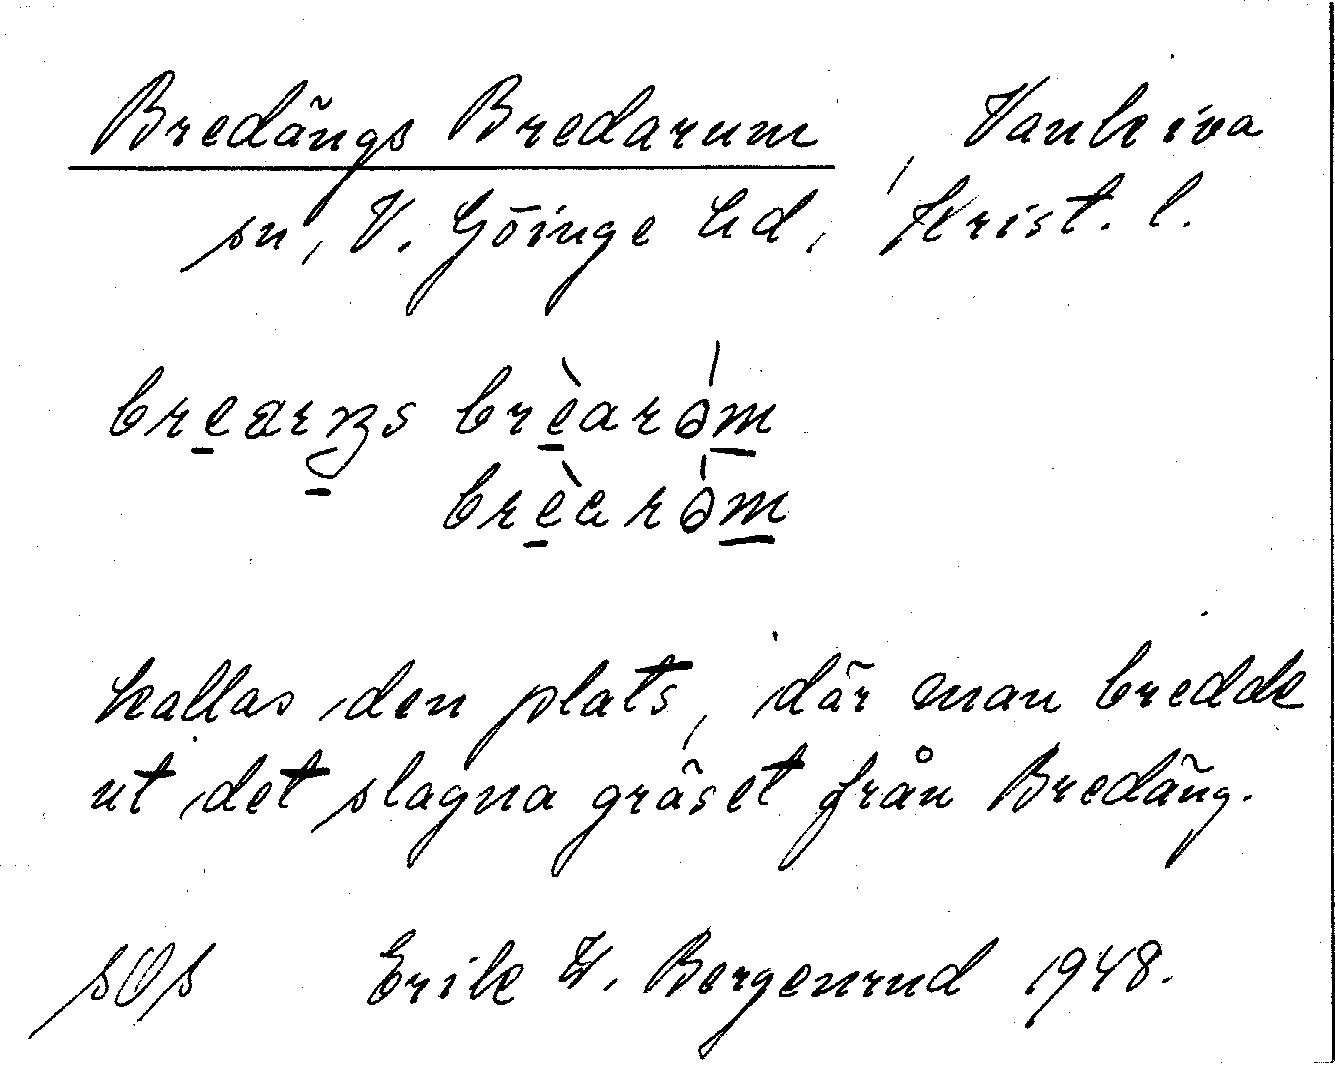 Bredängs Bredarum, Vankiva
sn, V. Göinge hd, Krist. l.
kallas den plats, där man bredde
ut det slagna gräset från Bredäng.
sOs Erik W. Bergenrud 1948.